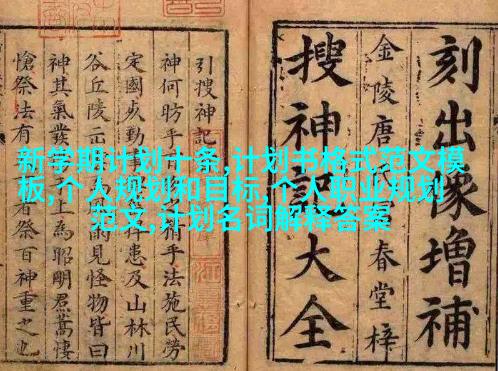 新学期计划十条,计划书格式范文模
板,个人规划和目标,个人职业规划
范文,计划名词解释答案
刻出像增補
金陵唐氏春堂梓
搜神記大全
引搜神記
神何昉乎乎法施民勞
定國勤事捍患及山林川
谷丘陵見怪物皆曰
神其氣發上為昭明焄蒿悽
愴祭法有者祭百神重之也